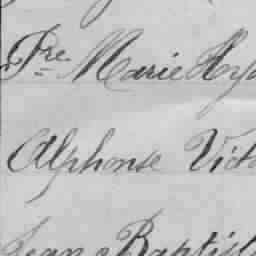 Pre Marie Hya
Alphonse Victo
Jean Baptist